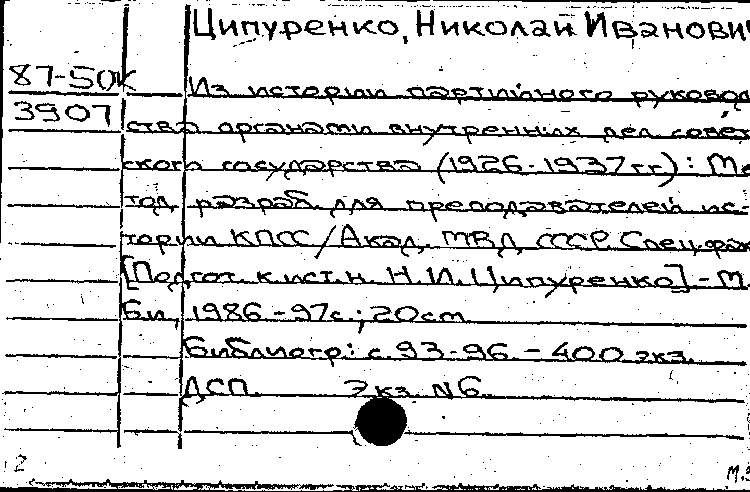 Ципуренко, Николай Иванови
87-50к
Из истории партийного руковод
3907
ства органами внутренних дел совет
ского государства (1926-1937 гг): Ме
тод. разраб. для преподавателей ис-
тории КПСС/Акад. МВД СССР. Спец.фак
[Подгот. к.ист.н. Н.И.Ципуренко]-М.
Би, 1986 -97с.; 20cm
Библиогр: с.93-96. - 400 экз.
ДСП. Экз. N6.
2
м.